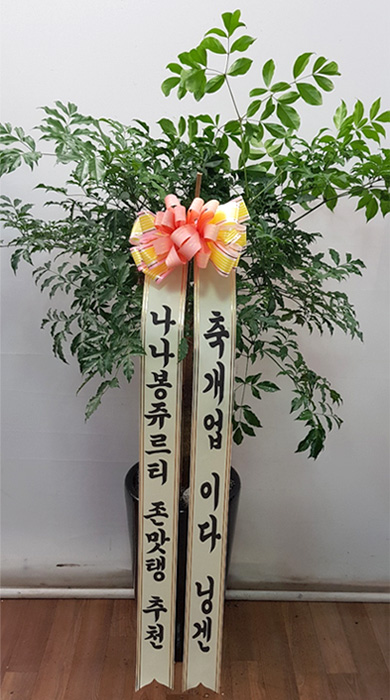 축개업 이다 닝겐
나나봉쥬르티 존맛탱 추천